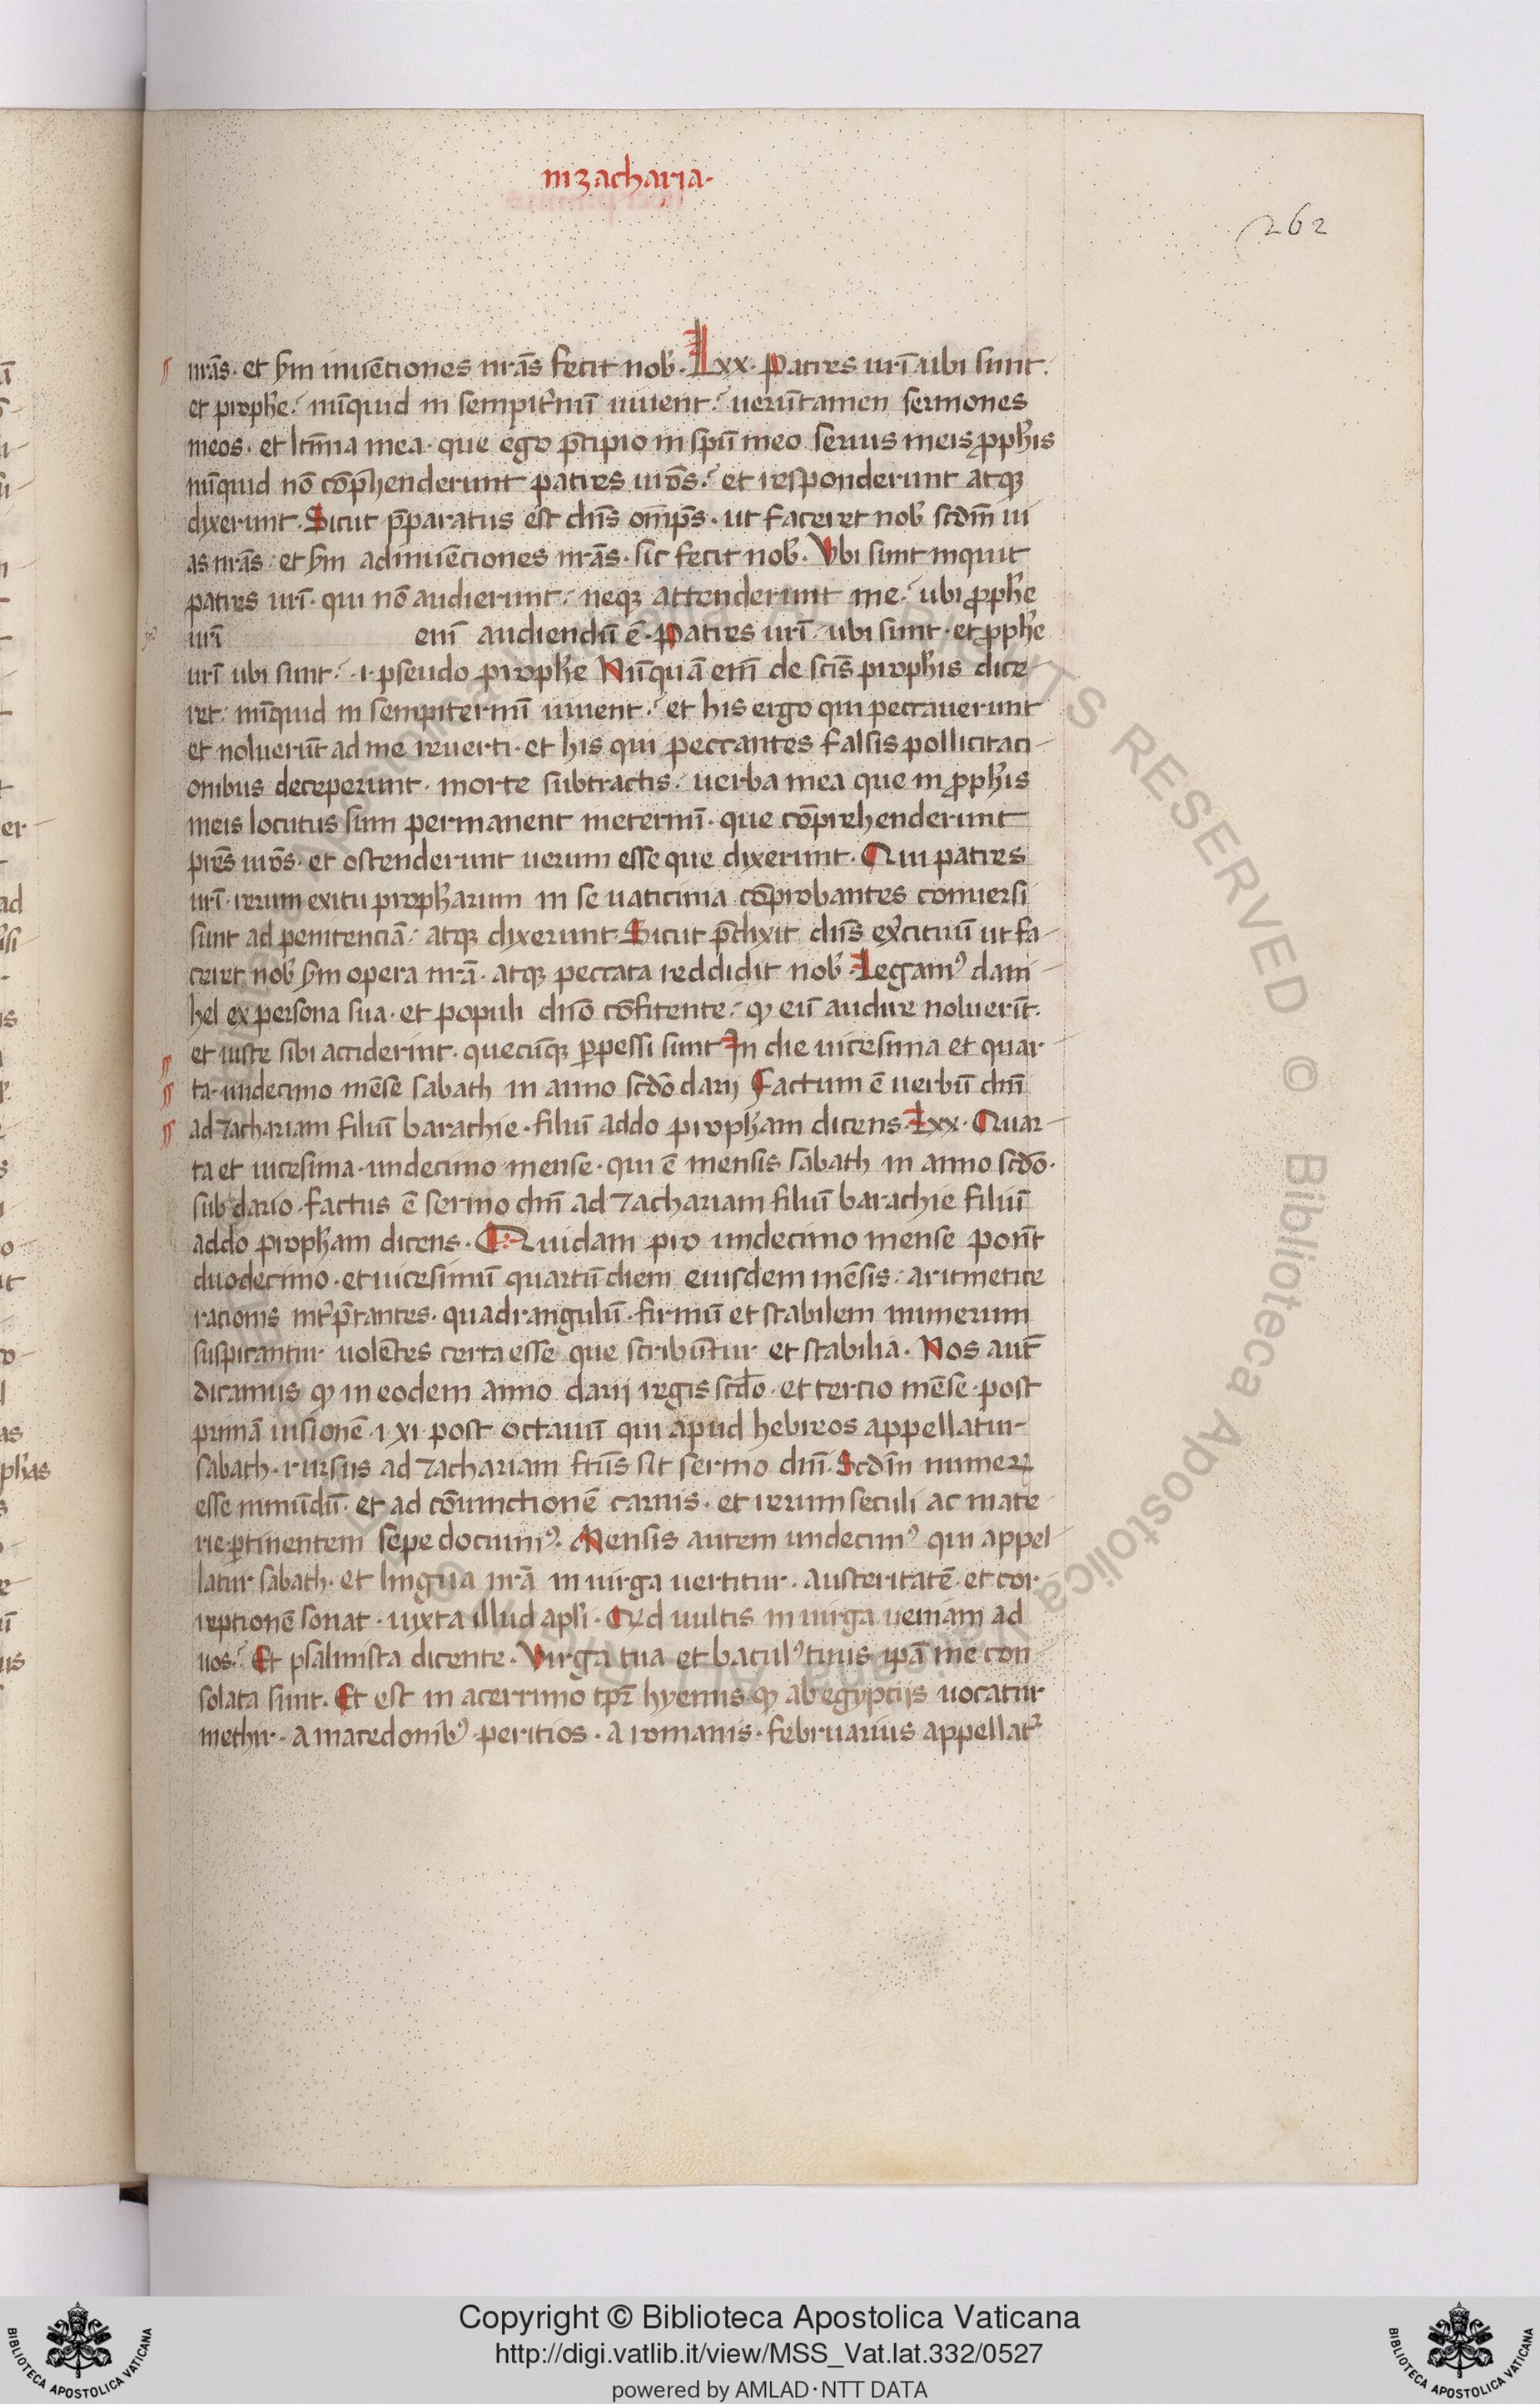 in zacharia.
262
nrãs. et hm inuẽtiones nrãs fecit nob̾. Lxx. Patres urĩ ubi sunt.
et prophe. nũquid in sempit̾nũ uiuent. uerũtamen sermones
meos. et ltĩma mea. que ego p̃cipio in spũ meo seruis meis ꝓph̾is
nũquid nõ cõp̃henderunt patres urõs. et responderunt atqꝫ
dixerunt. Sicut p̃paratus est dñs om̃ps. ut faceret nob̾ scd̃m ui
as nrãs. et hm adinuẽtiones nrãs. sic fecit nob̾. Vbi sunt inquit
patres urĩ. qui nõ audierunt. neqꝫ attenderunt me. ubi ꝓph̾e
urĩ enĩ audiendũ ẽ. Patres urĩ ubi sunt. et ꝓph̾e
urĩ ubi sunt. .i. pseudo proph̾e Nũquã enĩ de scĩs proph̾is dice
ret. nũquid in sempiternũ uiuent. et his ergo qui peccauerunt
et noluerũt ad me reuerti. et his qui peccantes falsis pollicitaci
onibus deceperunt. morte subtractis. uerba mea que in ꝓph̾is
meis locutus sum permanent ineternũ. que cõprehenderunt
prẽs urõs. et ostenderunt uerum esse que dixerunt. Qui patres
urĩ. rerum exitu proph̾arum in se uaticinia cõprobantes conuersi
sunt ad penitenciã. atqꝫ dixerunt. Sicut p̃dixit dñs ex̾cituũ ut fa
ceret nob̾ hm opera nrã. atqꝫ peccata reddidit nob̾. Legamꝰ dani
hel ex persona sua. et populi dño cõfitente. ꝙ eũ audire noluerĩt.
et iuste sibi acciderint. quecũqꝫ ꝑpessi sunt In die uicesima et quar
ta. undecimo mẽse sabath in anno scdõ darij Factum ẽ uerbũ dnĩ
ad zachariam filiũ barachie. filiũ addo proph̾am dicens. Lxx. Quar
ta et uicesima. undecimo mense. qui ẽ mensis sabath in anno scdõ.
sub dario. factus ẽ sermo dnĩ ad zachariam filiũ barachie filiũ
addo proph̾am dicens. Quidam pro undecimo mense ponũt
duodecimo. et uicesimũ quartũ diem eiusdem mẽsis. aritmetice
racionis int̾p̃tantes. quadrangulũ. firmũ et stabilem numerum
suspicantur uolẽtes certa esse que scribũtur et stabilia. Nos aut̃
dicamus ꝙ in eodem anno darij regis scdõ. et tercio mẽse. post
primã uisionẽ .i. xi. post octauũ qui apud hebreos appellatur
sabath. rursus ad zachariam ftũs sit sermo dnĩ. Scdm̃ numerꝝ
esse inmũdũ. et ad cõiunctionẽ carnis. et rerum seculi ac mate
rie ꝑtinentem sepe docuimꝰ. Mensis autem undecimꝰ qui appel
latur sabath. et lingua nrã in uirga uertitur. austeritatẽ. et cor
reptionẽ sonat. iuxta illud apli̾. Qd uultis in uirga ueniam ad
uos. Et psalmista dicente. Virga tua et baculꝰ tuus ipã me con
solata sunt. Et est in acerrimo tp̃r hyemis. ꝙ ab egyptijs uocatur
methir. a macedonibꝰ. peritios. a romanis. februarius appellat᷑
Copyright © Biblioteca Apostolica Vaticana
http://digi.vatlib.it/view/MSS_Vat.lat.332/0527
powered by AMLAD·NTT DATA